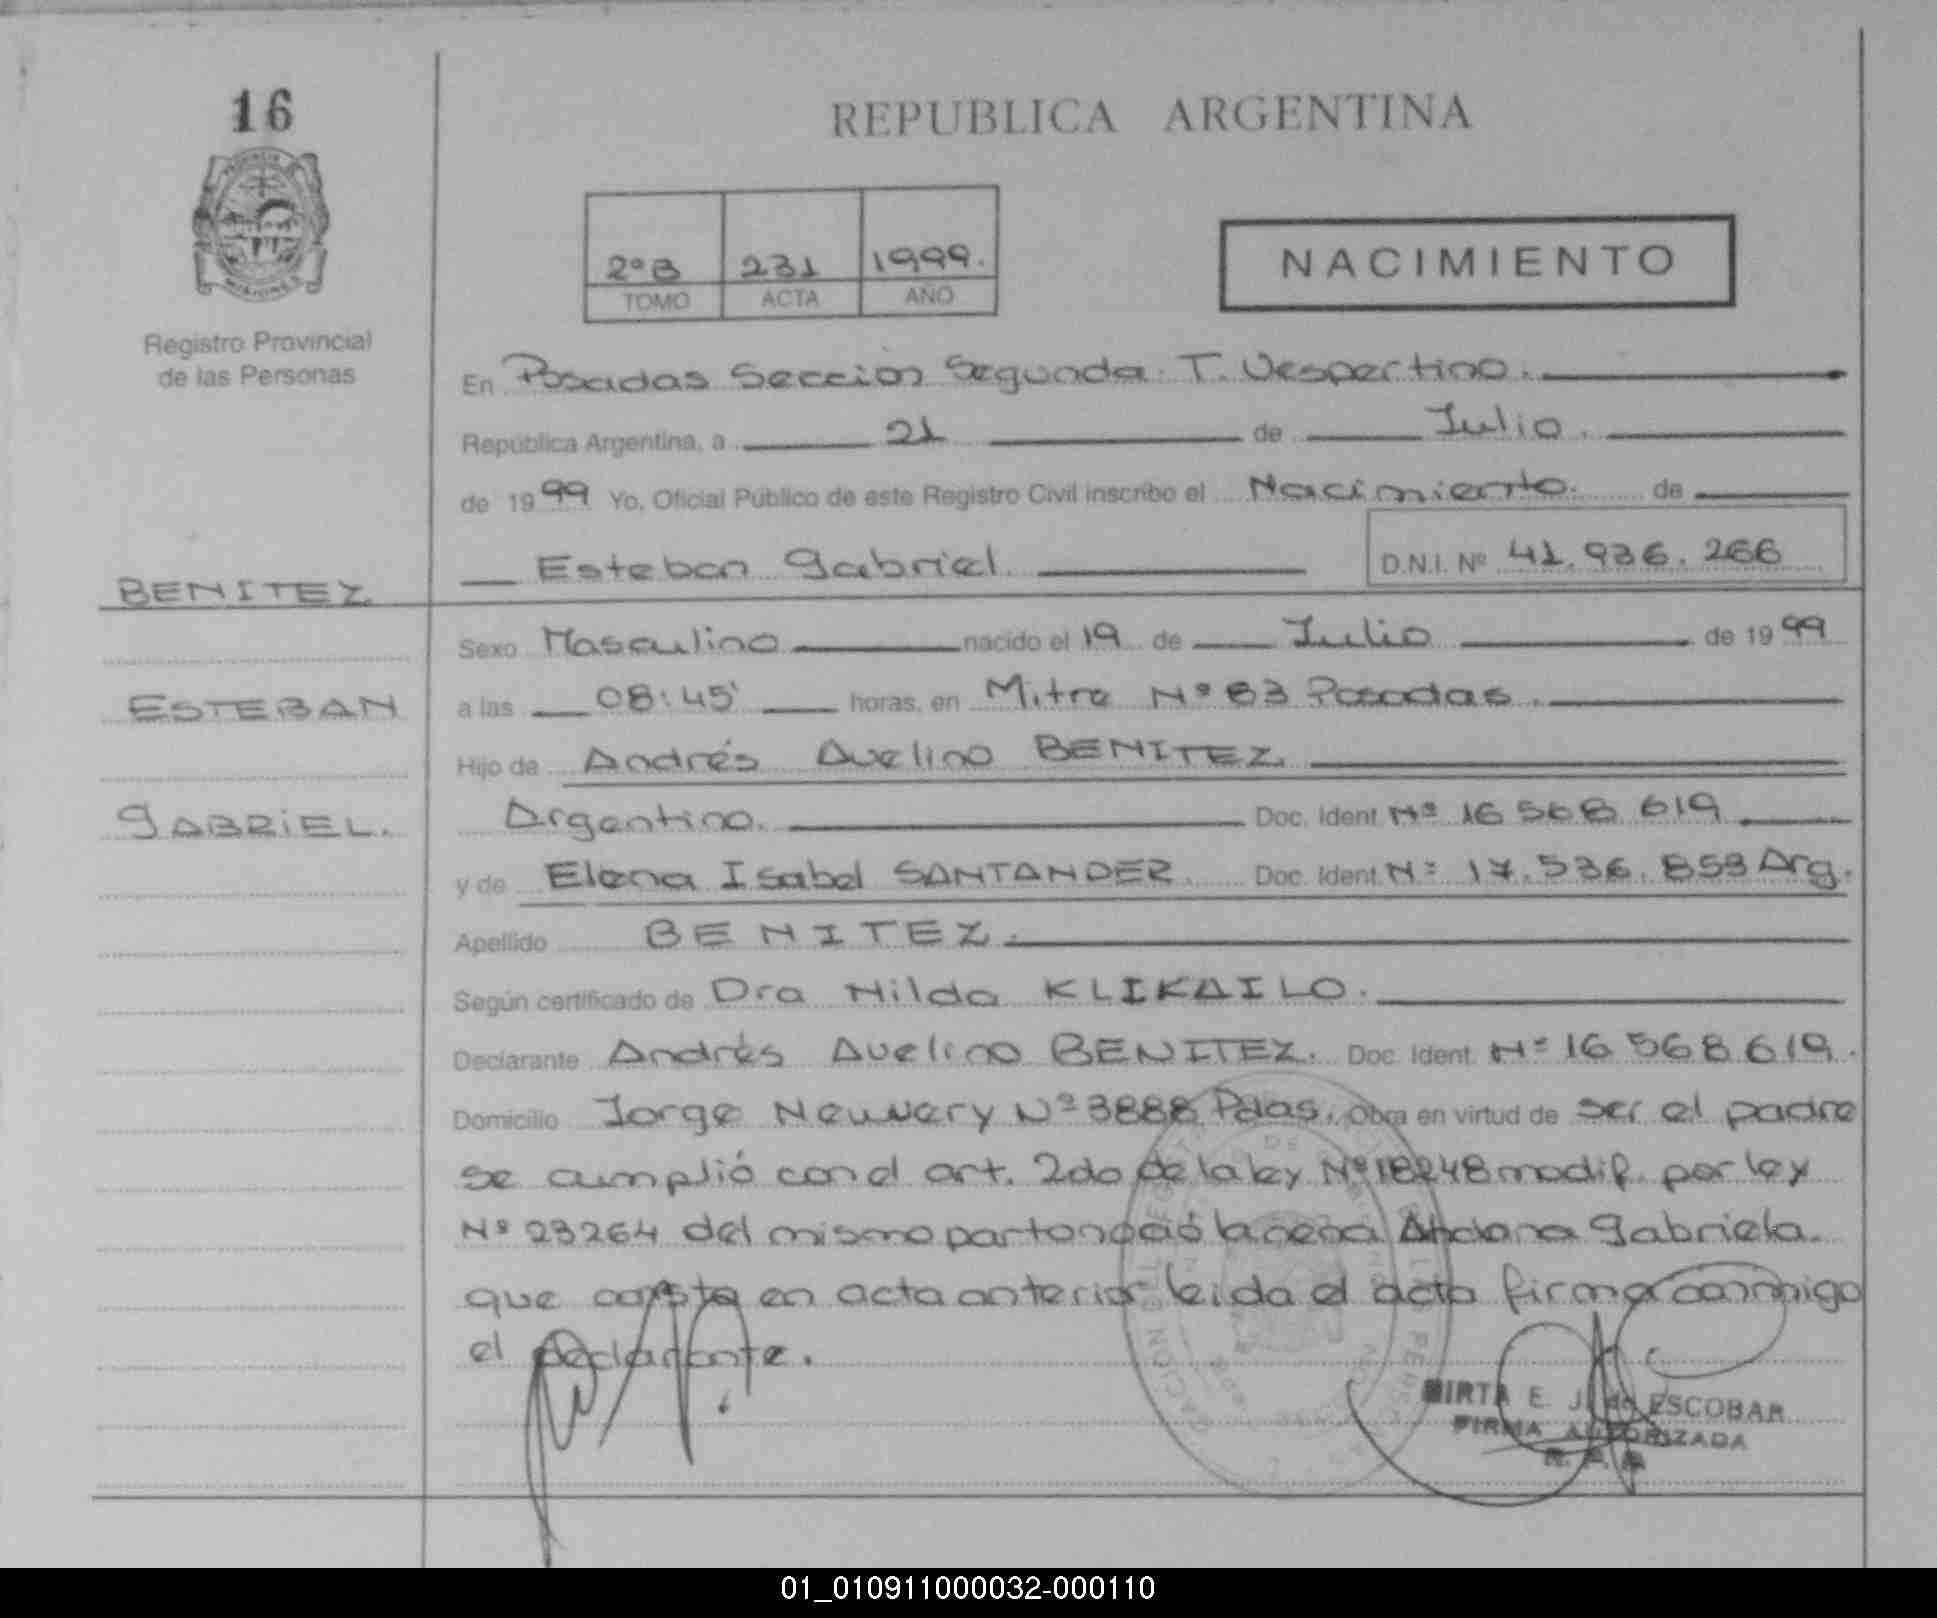 16
REPUBLICA ARGENTINA
2º B 231 1999.
TOMO ACTA AÑO
NACIMIENTO
Registro Provincial
de las Personas
En Posadas Sección Segunda. T. Vespertino.
República Argentina, a 21 de Julio.
de 1999 Yo, Oficial Público de este Registro Civil inscribo el Nacimiento. de
Esteban Gabriel. D.N.I. Nº 41.936.266
BENITEZ
ESTEBAN
GABRIEL.
Sexo Masculino nacido el 19 de Julio de 1999
a las 08:45' horas, en Mitre Nº 83 Posadas.
Hijo de Andrés Avelino BENITEZ.
Argentino. Doc. Ident. Nº 16 568 619
y de Elena Isabel SANTANDER. Doc. Ident. Nº 17.536.859 Arg.
Apellido BENITEZ.
Según certificado de Dra Nilda KLIKAILO.
Declarante Andrés Avelino BENITEZ. Doc. Ident. Nº 16 568 619.
Domicilio Jorge Newvery Nº 3888 Pdas. Obra en virtud de ser el padre
se cumplió con el art. 2do de la ley Nº 18248 modif. por ley
Nº 23264 del mismo parto nació la nena Gabriela.
que consta en acta anterior leida el acta firma conmigo
el declarante.
MIRTA E. J. de ESCOBAR
FIRMA AUTORIZADA
01_010911000032-000110